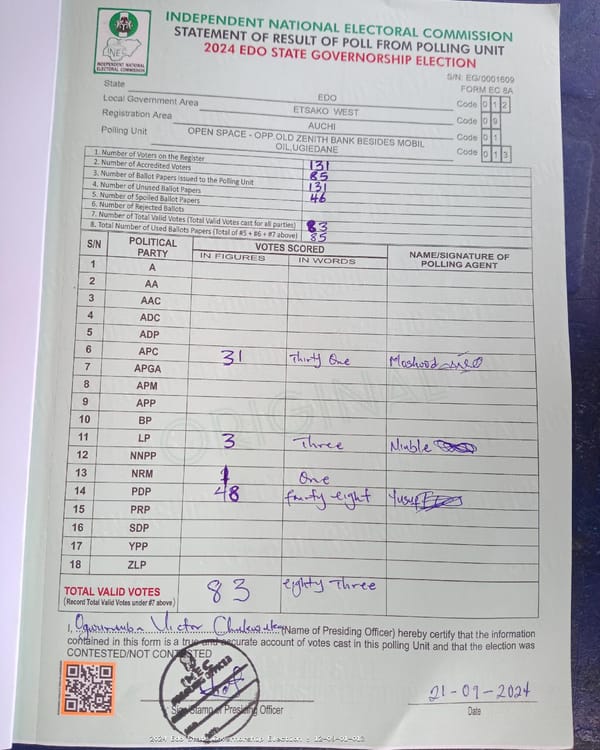 INDEPENDENT NATIONAL ELECTORAL COMMISSION
STATEMENT OF RESULT OF POLL FROM POLLING UNIT
2024 EDO STATE GOVERNORSHIP ELECTION
INEC
INDEPENDENT NATIONAL
ELECTORAL COMMISSION
S/N: EG/0001609
FORM EC 8A
State EDO Code 0 1 2
Local Government Area ETSAKO WEST Code 0 9
Registration Area AUCHI Code 0 1
Polling Unit OPEN SPACE - OPP.OLD ZENITH BANK BESIDES MOBIL OIL,UGIEDANE Code 0 1 3
1. Number of Voters on the Register 131
2. Number of Accredited Voters 85
3. Number of Ballot Papers Issued to the Polling Unit 131
4. Number of Unused Ballot Papers 46
5. Number of Spoiled Ballot Papers
6. Number of Rejected Ballots
7. Number of Total Valid Votes (Total Valid Votes cast for all parties) 83
8. Total Number of Used Ballots Papers (Total of #5 + #6 + #7 above) 85
S/N POLITICAL PARTY VOTES SCORED NAME/SIGNATURE OF POLLING AGENT
IN FIGURES IN WORDS
1 A
2 AA
3 AAC
4 ADC
5 ADP
6 APC 31 Thirty One Moshood
7 APGA
8 APM
9 APP
10 BP
11 LP 3 Three
12 NNPP
13 NRM 1 One
14 PDP 48 fourty eight Yusuf
15 PRP
16 SDP
17 YPP
18 ZLP
ORIGINAL
TOTAL VALID VOTES 83 eighty Three
(Record Total Valid Votes under #7 above)
I, Victor (Name of Presiding Officer) hereby certify that the information
contained in this form is a true and accurate account of votes cast in this polling Unit and that the election was
CONTESTED/NOT CONTESTED
INEC
PRESIDING OFFICER
Sign Stamp of Presiding Officer
21-09-2024
Date
2024 Edo State Governorship Election : 12-09-01-013